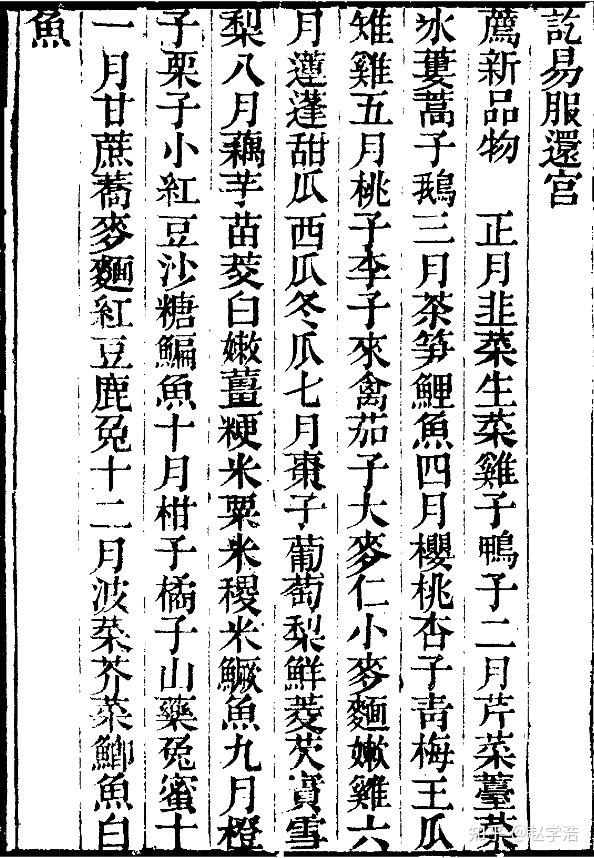 訖易服還宮
薦新品物　正月韭菜生菜雞子鴨子二月芹菜薹菜
氷蔞蒿子鵝三月茶笋鯉魚四月櫻桃杏子靑梅王瓜
雉雞五月桃子李子來禽茄子大麥仁小麥麵嫩雞六
月蓮蓬甜瓜西瓜冬瓜七月棗子葡萄梨鮮菱芡實雪
梨八月藕芋苗茭白嫩薑粳米粟米稷米鱖魚九月橙
子栗子小紅豆沙糖鯿魚十月柑子橘子山藥兔蜜十
一月甘蔗蕎麥麵紅豆鹿兔十二月波菜芥菜鯽魚白
魚
知乎 @赵学浩